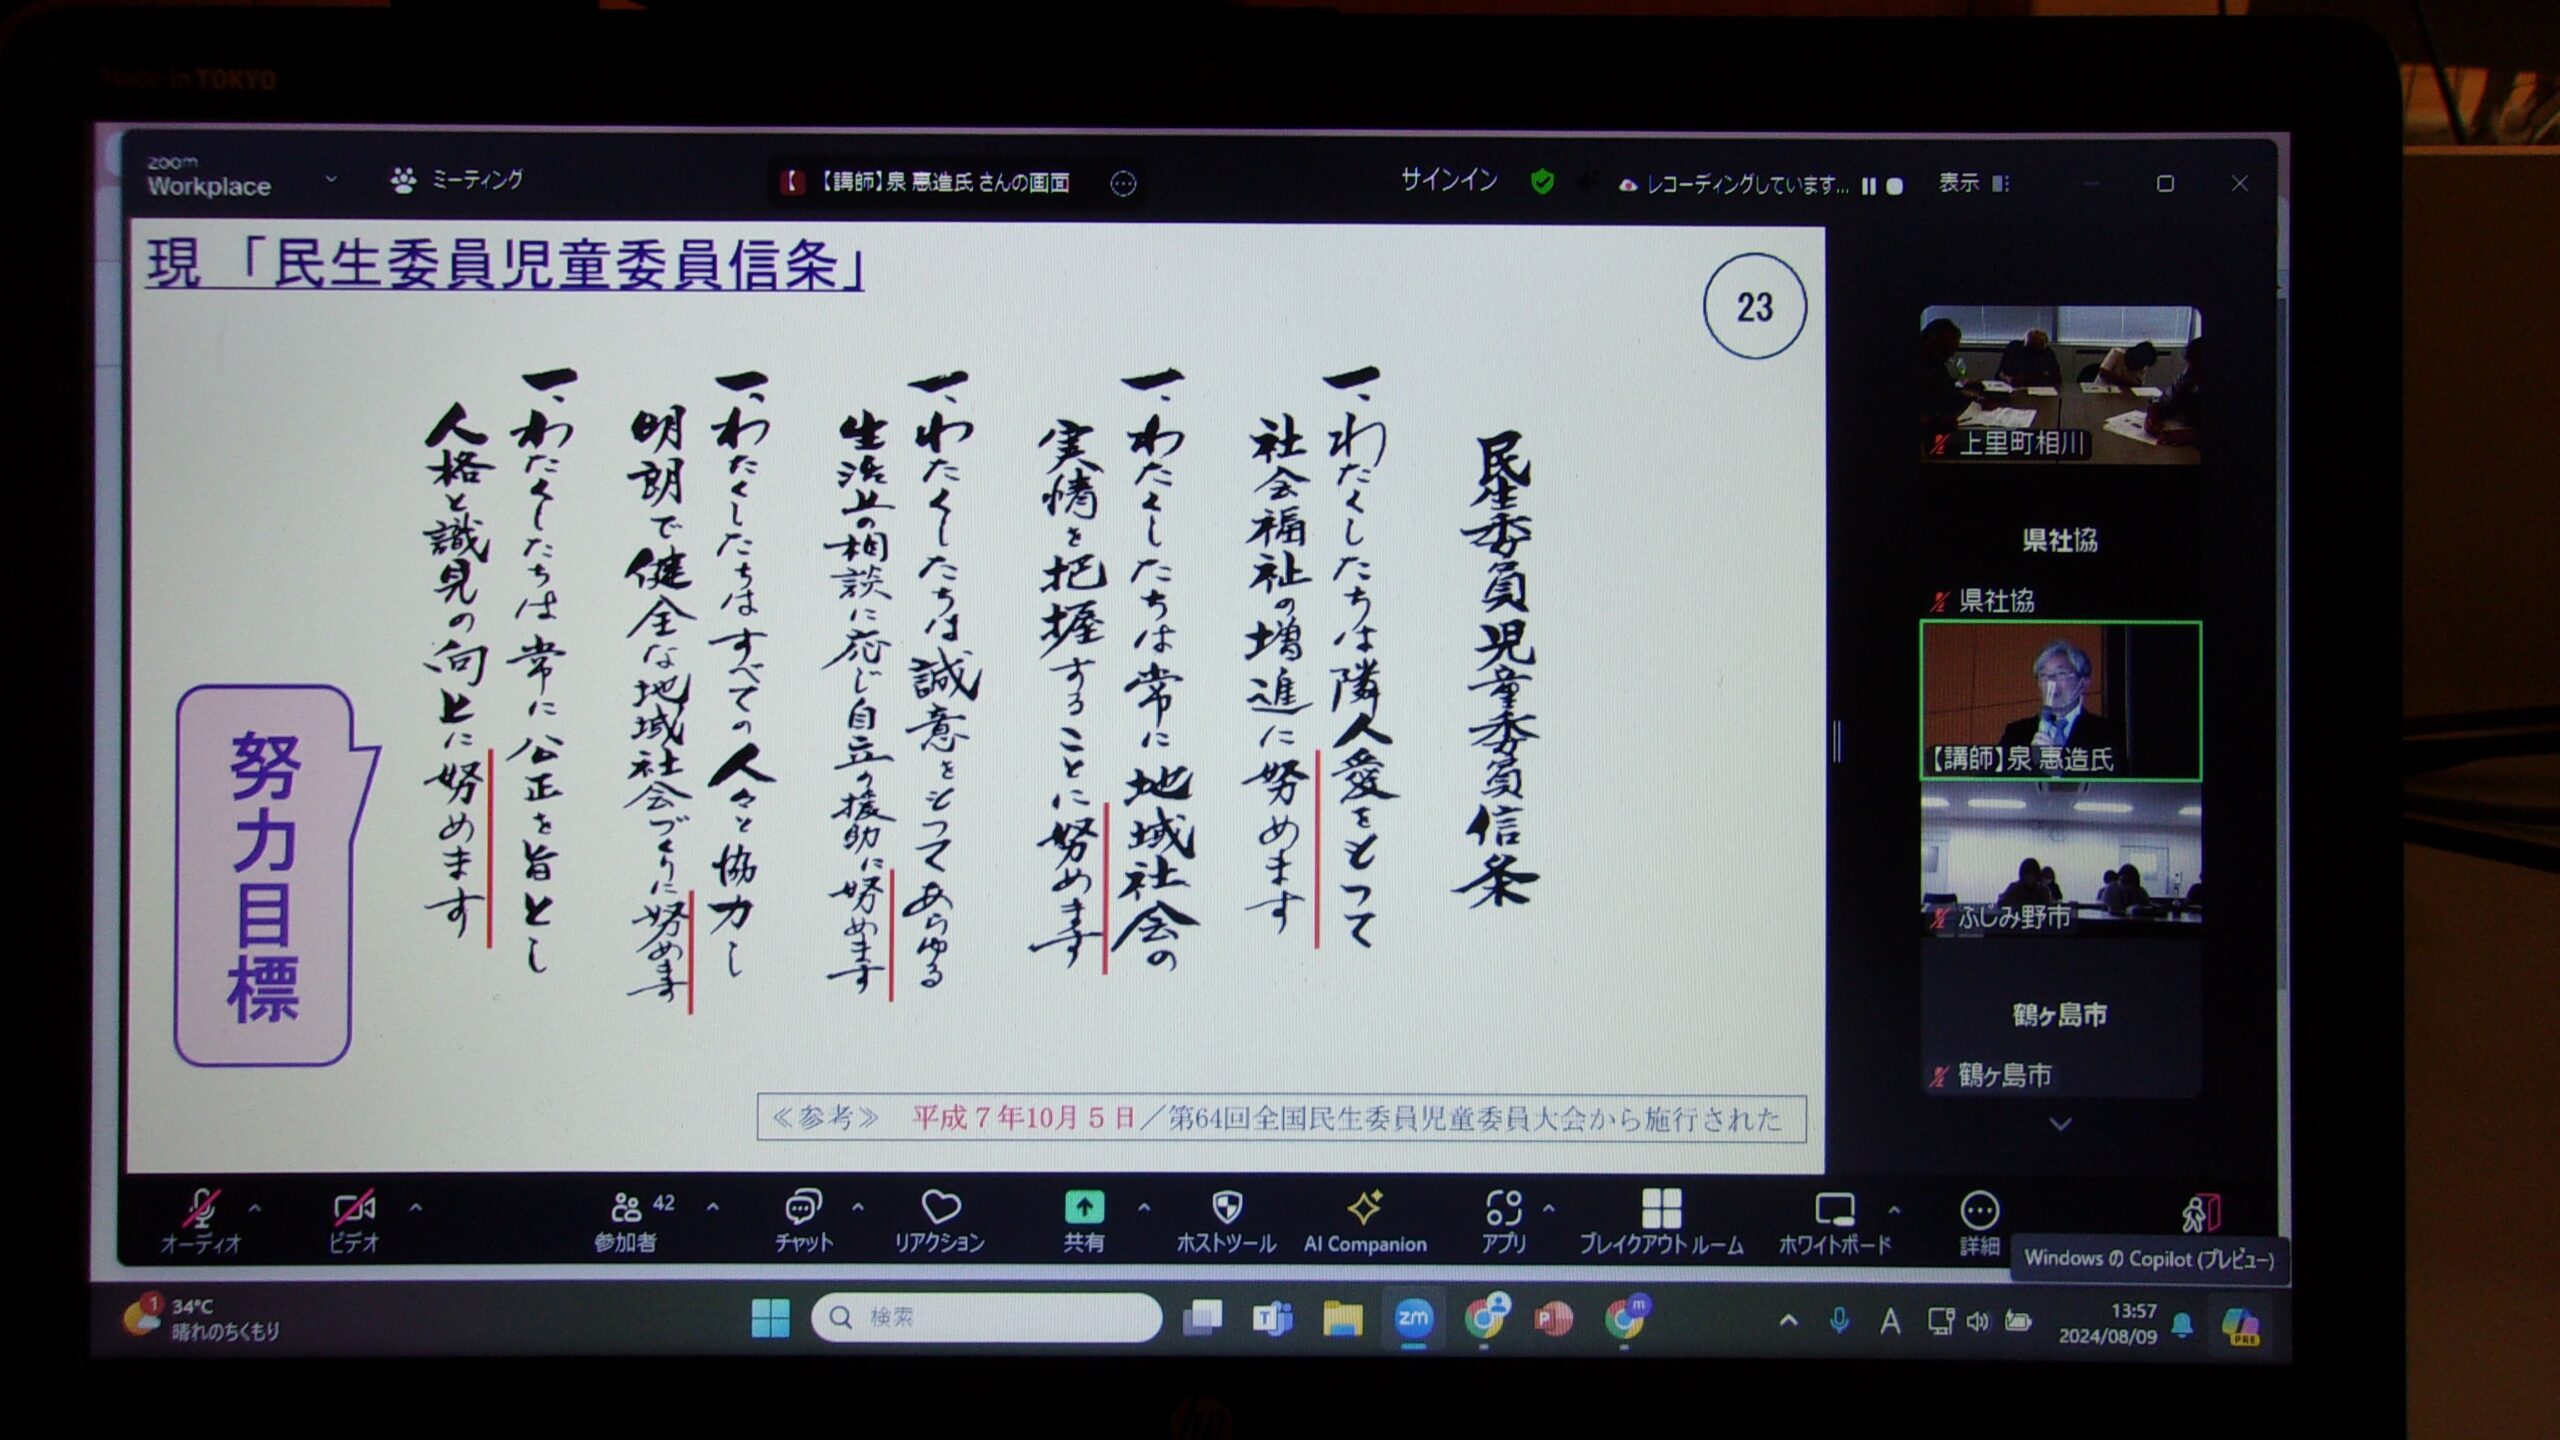 Made in TOKYO
zoom
Workplace
ミーティング
【講師】泉 惠造氏 さんの画面
サインイン
レコーディングしています...
表示
現 「民生委員児童委員信条」
23
民生委員児童委員信条
一、わたくしたちは隣人愛をもって
社会福祉の増進に努めます
一、わたくしたちは常に地域社会の
実情を把握することに努めます
一、わたくしたちは誠意をもってあらゆる
生活上の相談に応じ自立の援助に努めます
一、わたくしたちはすべての人々と協力し
明朗で健全な地域社会づくりに努めます
一、わたくしたちは常に公正を旨とし
人格と識見の向上に努めます
努力目標
≪参考≫ 平成７年10月５日／第64回全国民生委員児童委員大会から施行された
上里町相川
県社協
県社協
【講師】泉 惠造氏
ふじみ野市
鶴ヶ島市
鶴ヶ島市
オーディオ
ビデオ
42
参加者
チャット
リアクション
共有
ホストツール
AI Companion
アプリ
ブレイクアウト ルーム
ホワイトボード
詳細
Windows の Copilot (プレビュー)
1
34°C
晴れのちくもり
検索
zm
m
A
13:57
2024/08/09
PRE
hp